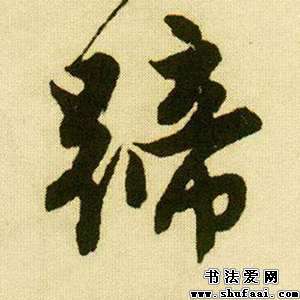 蹄
书法爱网
www.shufaai.com